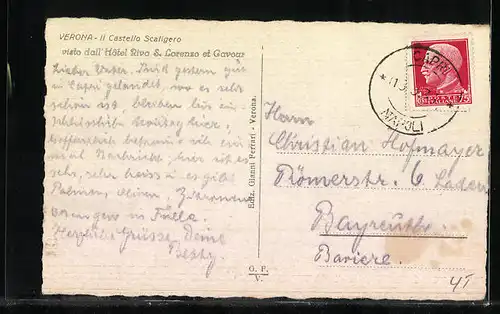 VERONA - Il Castello Scaligero
visto dall'Hôtel Riva S. Lorenzo et Cavour
Lieber Vater. Sind gestern gut
in Capri gelandet, wo es sehr
schön ist, bleiben bis
hier,
ich
mal Nachricht, hier ist es
sehr, sehr heiss, es gibt
Palmen, Oliven, Zitronen,
Orangen in Fülle.
Herzliche Grüsse Deine
Betty.
Ediz. Gianni Ferrari - Verona.
G. F.
V.
CAPRI
NAPOLI
75
Herrn
Christian Hofmayer
Römerstr. 6 Laden
Bayreuth.
Baviere.